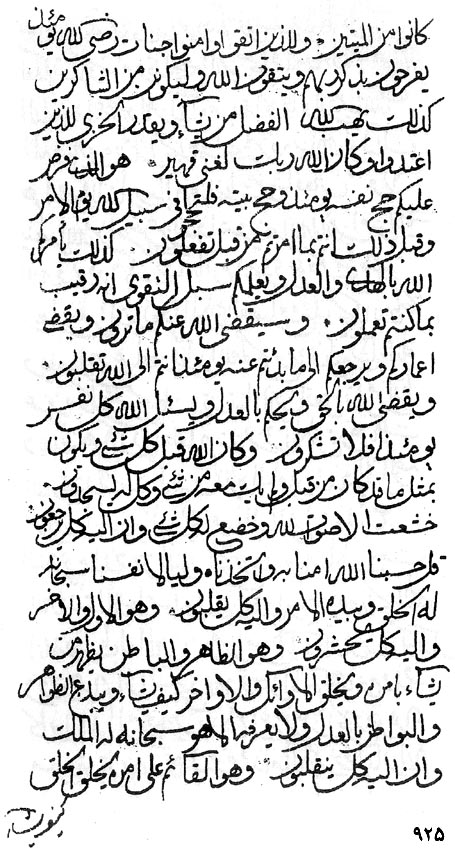 كانوا من الميتين والذين اتقوا وامنوا جنات رضى الله يومئذ
يفرحون بذكر ربهم ويتقون الله وليكونن من الشاكرين
كذلك يهب الله الفضل من يشاء ويقدر الخزى للذين
اعتدوا وكان الله ربك لغنى قهير هو الذى فرض
عليكم حج نفسه يومئذ وحج بيته فلتحجن فى سبيل الله الامر
وقبل ذلك انتم بما امرتم من قبل تفعلون كذلك يأمركم
الله بالهدى والعدل ويعلمكم سبل التقوى انه رقيب
بما كنتم تعملون وسيقضى الله عنكم ما ترون ويقضى
اعماركم ويرجعكم الى ما بدئتم عنه يومئذ انتم الى الله تقلبون
ويقضى الله بالحق ويحكم بالعدل ويسئل الله كل نفس
يومئذ افلا تشكرون وكان الله قبل كل شئ ويكون
بمثل ما قد كان من قبل ولم يك معه من شئ وكل له يسجدون
خشعت الاصوات لله وخضع له كل شئ وان اليه كل يرجعون
قل حسبنا الله امنا به واتخذناه وليا لانفسنا سبحانه
له الخلق وبيده الامر واليه كل يقلبون وهو الاول والاخر
واليه كل يحشرون وهو الظاهر والباطن يظهر من
يشاء بامره ويخلق الاوائل والاواخر كيف يشاء ويبدع الظواهر
والبواطن بالعدل ولا يعرفها الا هو سبحانه له الملك
وان اليه كل ينقلبون وهو القائم على امره يخلق الخلق
٩٢٥